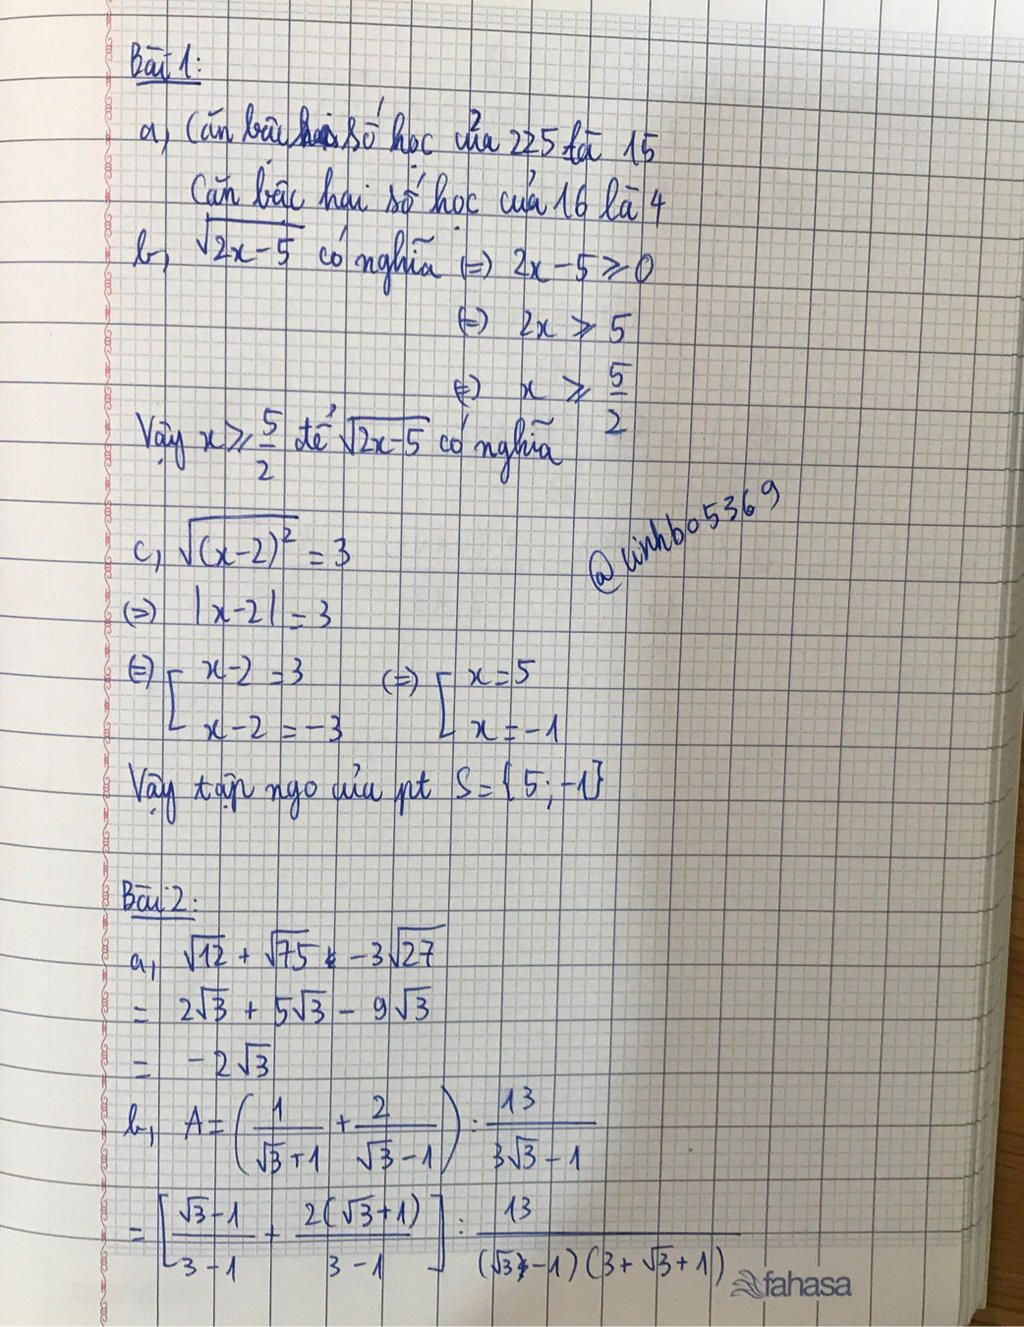 Bài 1:
a, Căn bậc hai số học của 225 là 15
Căn bậc hai số học của 16 là 4
b, √(2x-5) có nghĩa (=) 2x-5 ⩾ 0
(=) 2x ⩾ 5
(=) x ⩾ 5/2
Vậy x ⩾ 5/2 để √(2x-5) có nghĩa
@linhbo5369
c, √((x-2)²) = 3
(=) |x-2| = 3
(=) [ x-2 = 3 (=) [ x = 5
x-2 = -3 x = -1
Vậy tập ngo của pt S = {5; -1}
Bài 2:
a, √12 + √75 - 3√27
= 2√3 + 5√3 - 9√3
= -2√3
b, A = (1/(√3+1) + 2/(√3-1)) : 13/(3√3-1)
= [(√3-1)/(3-1) + 2(√3+1)/(3-1)] : 13/((√3-1)(3+√3+1))
fahasa